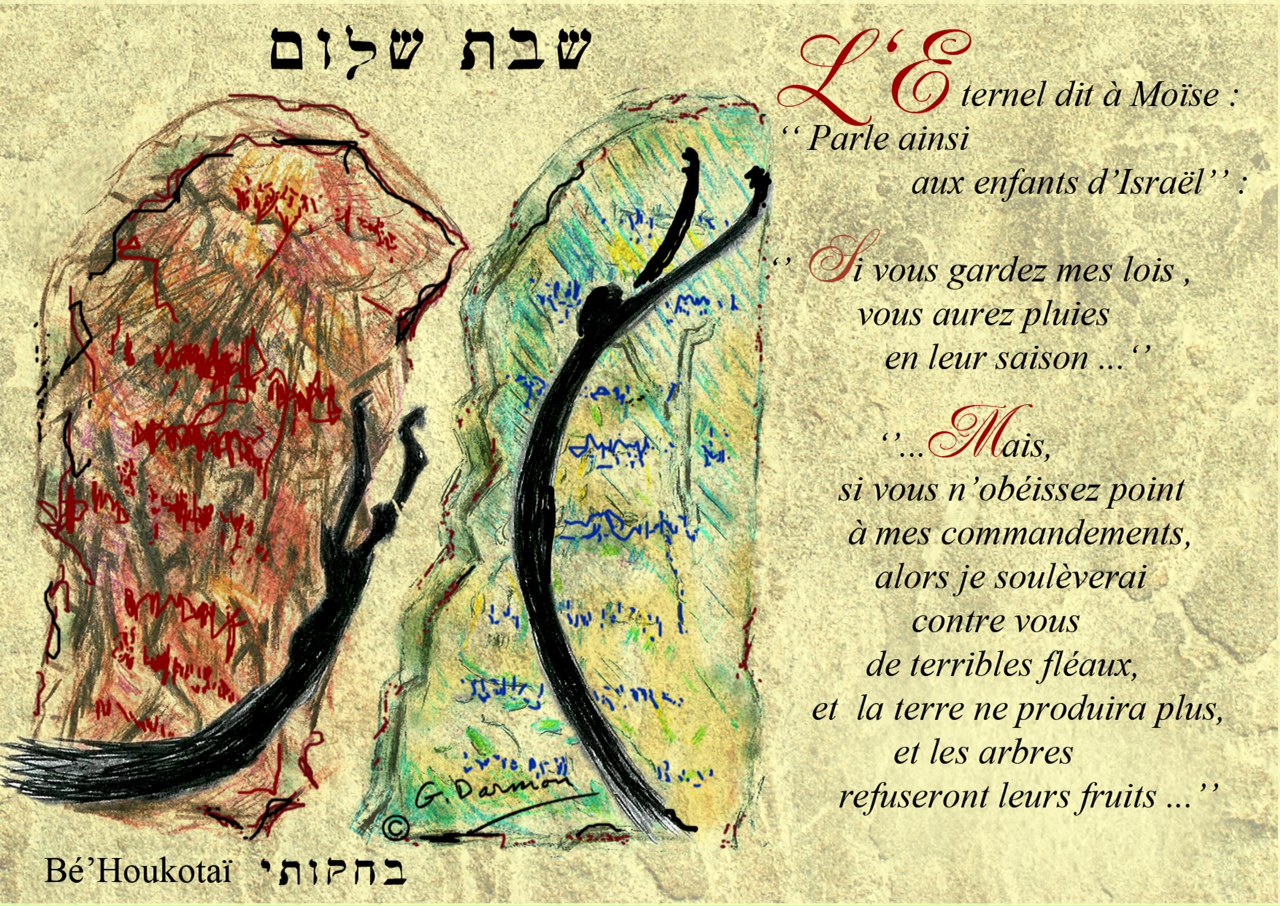 שבת שלום
L'Eternel dit à Moïse :
‘‘ Parle ainsi
aux enfants d’Israël’’ :
‘’ Si vous gardez mes lois ,
vous aurez pluies
en leur saison ...‘’
‘’... Mais,
si vous n’obéissez point
à mes commandements,
alors je soulèverai
contre vous
de terribles fléaux,
et la terre ne produira plus,
et les arbres
refuseront leurs fruits ...’’
G. Darmon
©
Bé’Houkotaï בחקותי